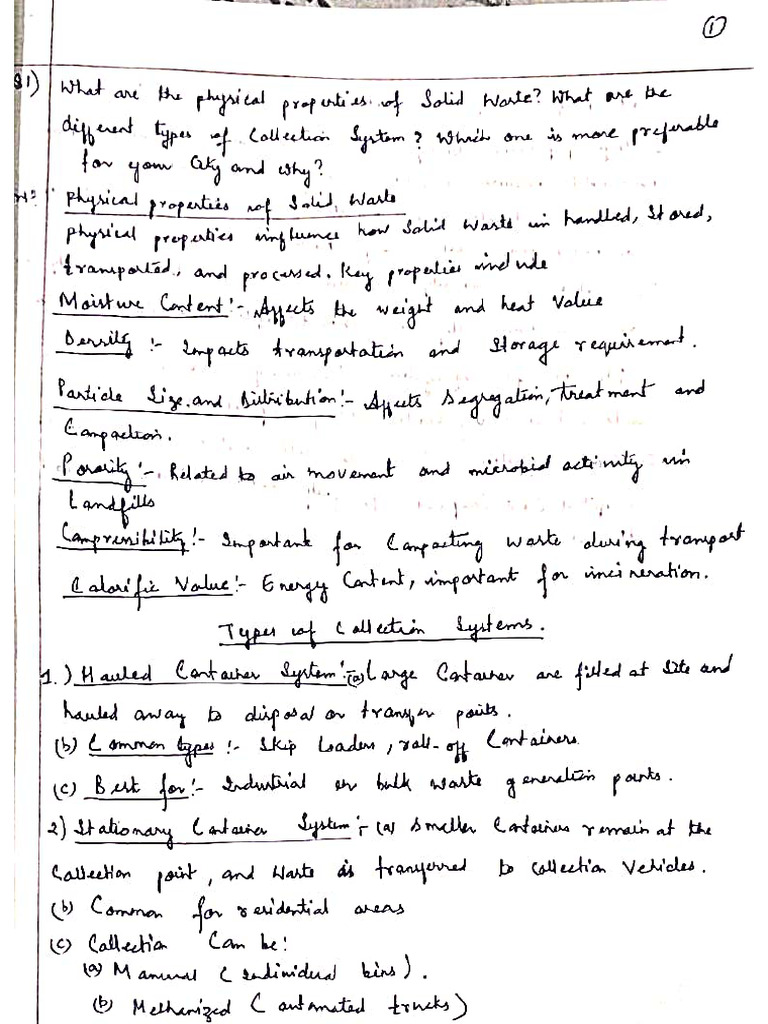 ①
Q1) What are the physical properties of Solid Waste? What are the
different types of Collection System? Which one is more preferable
for your City and why?
Physical properties of Solid Waste
Physical properties influence how Solid Waste in handled, Stored,
transported, and processed. Key properties include
Moisture Content:- Affects the weight and heat Value
Density :- Impacts transportation and Storage requirement.
Particle Size and Distribution:- Affects Segregation, treatment and
Compaction.
Porosity:- Related to air movement and microbial activity in
Landfills
Compressibility:- Important for Compacting waste during transport
Calorific Value:- Energy Content, important for incineration.
Types of Collection Systems.
1.) Hauled Container System:- (a) Large Container are filled at Site and
hauled away to disposal or transfer points.
(b) Common types :- Skip loaders, roll-off Containers
(c) Best for:- Industrial or bulk waste generation points.
2) Stationary Container System:- (a) Smaller Containers remain at the
Collection point, and Waste is transferred to collection Vehicles.
(b) Common for residential areas
(c) Collection Can be:
(a) Manual (individual bins).
(b) Methanized (automated trucks)